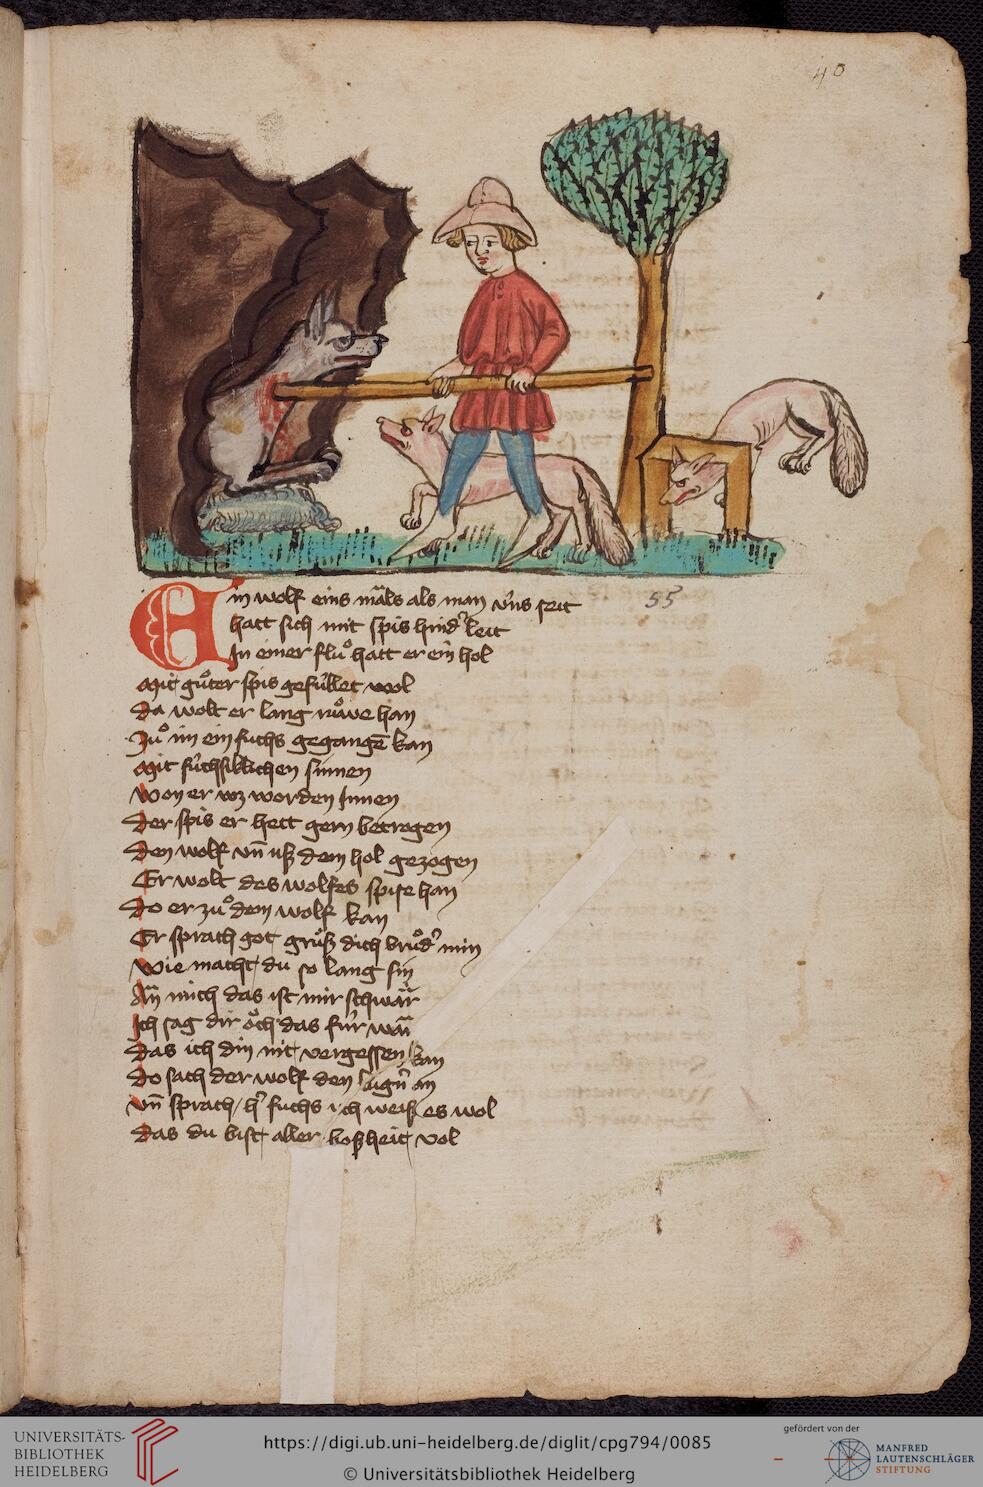 40
Ein wolf eins mäls als man v̓ns seit
hatt sich mit spis hind̓ leit
In einer fluͦ hatt er ein hol
Mit guͦter spis gefüllet wol
Da wolt er lang ruͦwe han
Zuͦ im ein fuchs gegangē kan
Mit füchsillichen sinnen
Won er wz worden Innen
Der spis er hett gern betrogen
Den wolf vn̄ uß dem hol gezogen
Er wolt des wolfes spise han
Do er zuͦ dem wolf kan
Er sprach got gruͤß dich bruͦd̓ min
wie macht du so lang sin
An mich das ist mir schwär
Ich sag dir oͤch das für wär
Das ich din nit vergessen kan
Do sach der wolf den an
vn̄ sprach / h̓ fuchs ich weiß es wol
Das du bist aller boßheit vol
55
UNIVERSITÄTS-
BIBLIOTHEK
HEIDELBERG
https://digi.ub.uni-heidelberg.de/diglit/cpg794/0085
© Universitätsbibliothek Heidelberg
gefördert von der
MANFRED
LAUTENSCHLÄGER
STIFTUNG